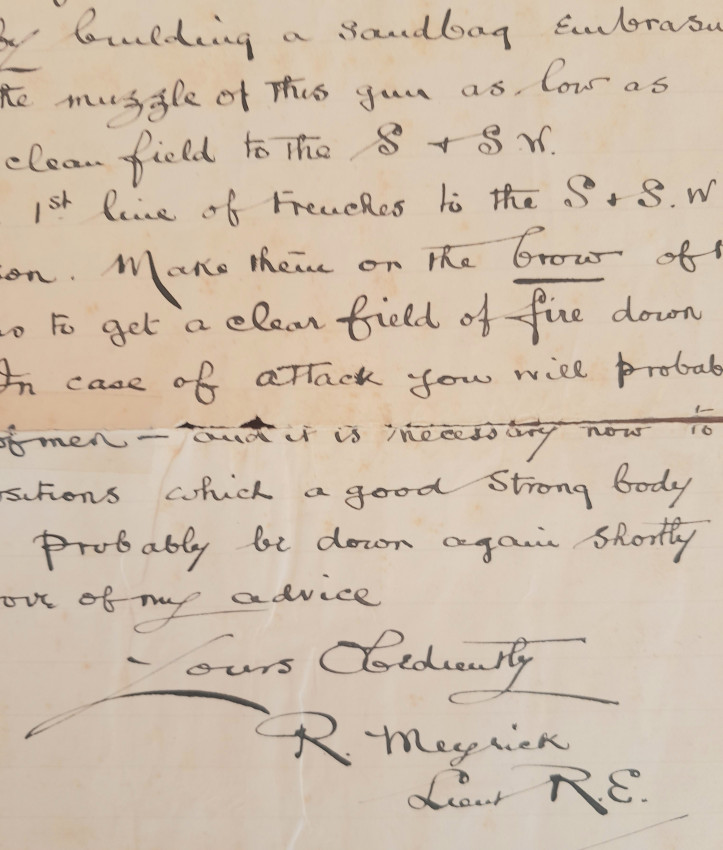 by building a sandbag Embrasu
the muzzle of this gun as low as
clear field to the S + S W.
1st line of trenches to the S + S. W
on. Make them on the brow of
to get a clear field of fire down
In case of attack you will probab
of men — and it is necessary now to
sitions which a good strong body
Probably be down again shortly
ove of my advice
Yours Obediently
R. Meyrick
Lieut R.E.